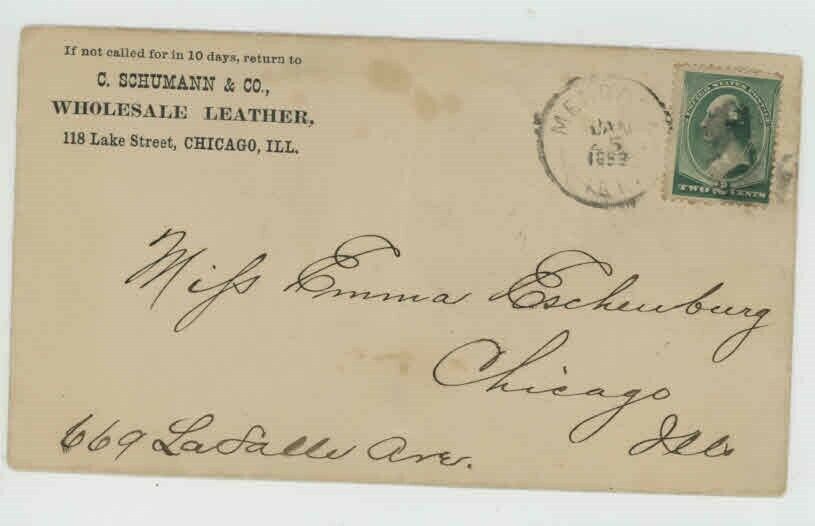 If not called for in 10 days, return to
C. SCHUMANN & CO.,
WHOLESALE LEATHER,
118 Lake Street, CHICAGO, ILL.
JAN
25
UNITED STATES POSTAGE
TWO 2 CENTS
Miss Emma Eschenburg
Chicago
669 LaSalle Ave. Ills